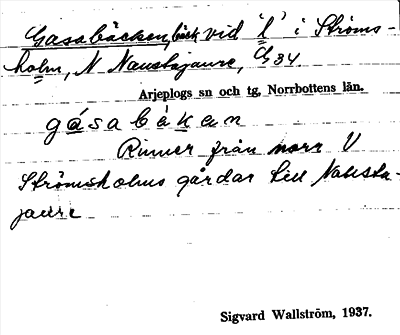 Gassbäcken, bäck vid 'l' i Ströms-
holm, N Naustajaure, G 34.
Arjeplogs sn och tg, Norrbottens län.
gásabàkan
Rinner från norr V
Strömsholms gårdar till Nausta-
jaure
Sigvard Wallström, 1937.